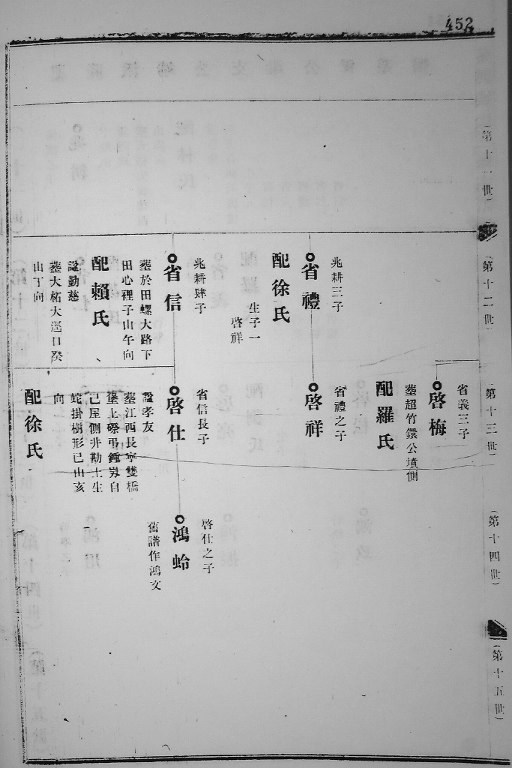 452
(第十一世)
(第十二世)
(第十三世)
(第十四世)
(第十五世)
兆耕三子
省禮
配徐氏
生子一
啓祥
兆耕肆子
省信
葬於田螺大路下
田心裡子山午向
配賴氏
諡勤慈
葬大柘大逕口癸
山丁向
省義三子
啓梅
葬超竹鑑公墳側
配羅氏
省禮之子
啓祥
省信長子
啓仕
諡孝友
葬江西長寧雙橋
堡上磜弔鐘岽自
己屋側井勘土生
蛇掛樹形巳山亥
向
配徐氏
啓仕之子
鴻蛉
舊譜作鴻文